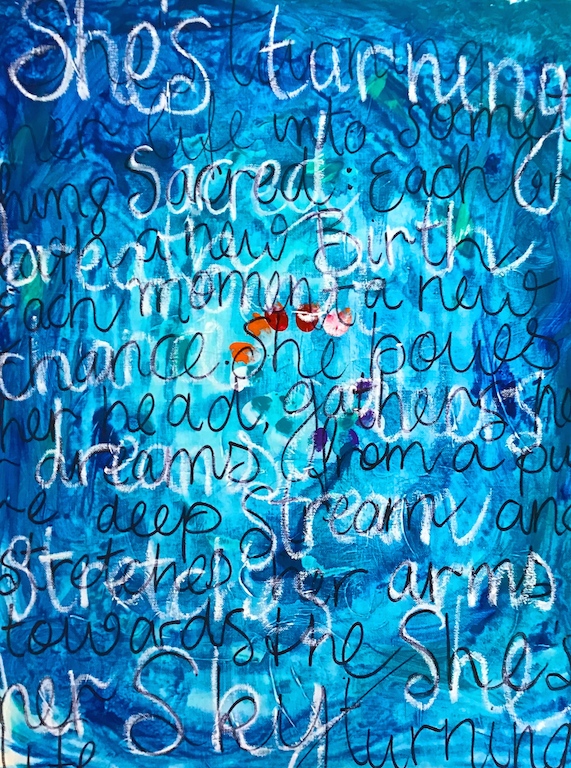 She's turning
her life into some
hing Sacred: Each br
breath a new Birth
Each moment a new
chance. She bowes
her head, gathers he
r dreams from a pu
re deep Stream and
Stretches her arms
towards the She's
her Sky turning
life